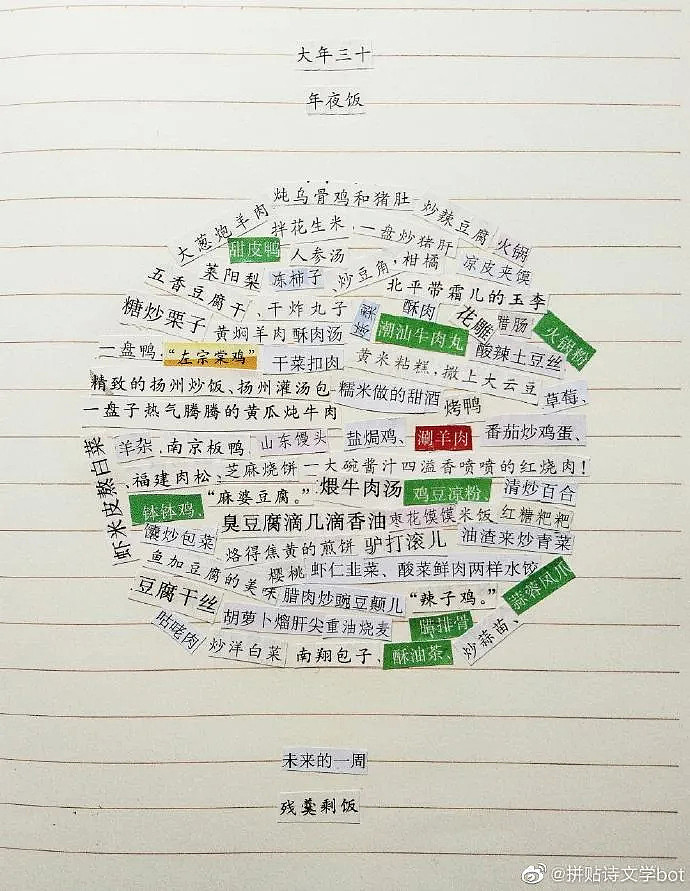 大年三十
年夜饭
炖乌骨鸡和猪肚
大葱炮羊肉
拌花生米、
一盘炒猪肝
炒辣豆腐
火锅
甜皮鸭
人参汤
柑橘
凉皮夹馍
莱阳梨
冻柿子、
炒豆角,
北平带霜儿的玉李
五香豆腐干
、干炸丸子
酥肉
花雕
腊肠
火锅粉
糖炒栗子
黄焖羊肉
酥肉汤
潮汕牛肉丸
酸辣土豆丝
一盘鸭,
“左宗棠鸡”
干菜扣肉
黄米粘糕,撒上大云豆
精致的扬州炒饭、扬州灌汤包
糯米做的甜酒
烤鸭
草莓、
一盘子热气腾腾的黄瓜炖牛肉
虾米皮熬白菜
羊杂、
南京板鸭、
山东馒头
盐焗鸡、
涮羊肉
番茄炒鸡蛋、
、福建肉松、
芝麻烧饼
一大碗酱汁四溢香喷喷的红烧肉!
钵钵鸡、
“麻婆豆腐。”
煨牛肉汤
鸡豆凉粉、
清炒百合
臭豆腐滴几滴香油
枣花馍馍
米饭
红糖粑粑
馕炒包菜
烙得焦黄的煎饼
驴打滚儿
油渣来炒青菜
鱼加豆腐的美味
樱桃
虾仁韭菜、酸菜鲜肉两样水饺
蒜蓉凤爪
豆腐干丝
腊肉炒豌豆颠儿
“辣子鸡。”
胡萝卜熘肝尖
重油烧麦
腊排骨
炒蒜苗、
咕咾肉
炒洋白菜
南翔包子、
酥油茶、
未来的一周
残羹剩饭
@拼贴诗文学bot